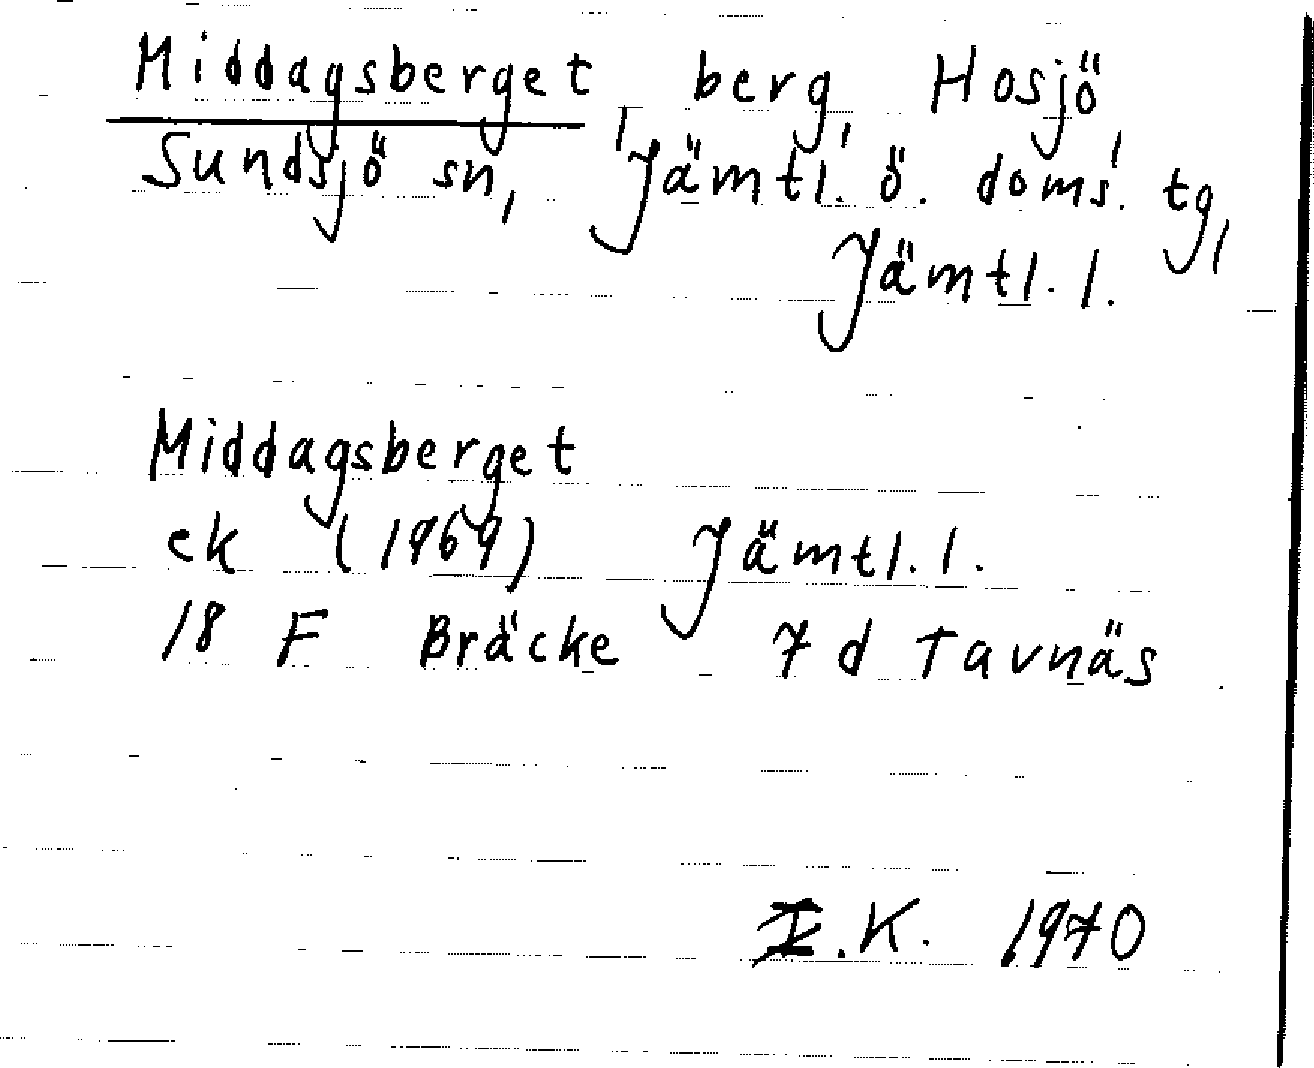 Middagsberget, berg, Hosjö,
Sundsjö sn, Jämtl. ö. doms. tg,
Jämtl. l.
Middagsberget
ek (1969) Jämtl. l.
18 F Bräcke 7 d Tavnäs
I.K. 1970